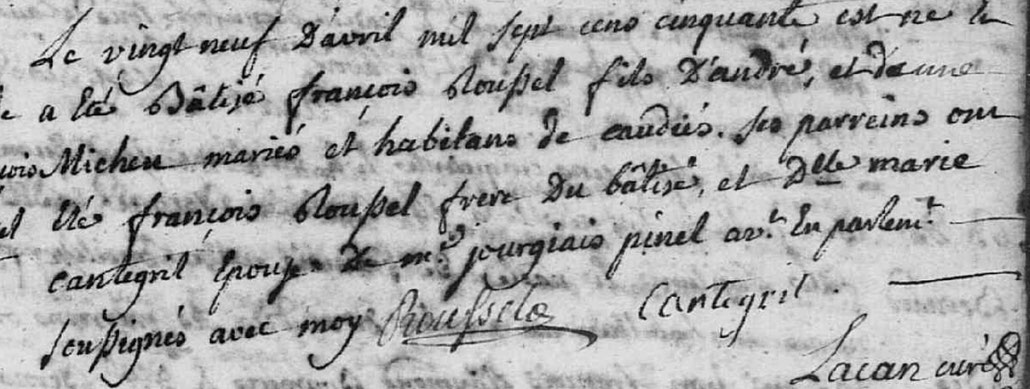 Le vingt neuf D'avril mil sept cens cinquante est ne le
a Eté Bâtisé françois Roussel fils D'andré, et de
Micheu mariés et habitans de caudiés. ses parreins ont
Eté françois Roussel frere Du bâtisé, et Dlle marie
cantegril Epouse De mr. pinel avt. En parlemt.
soussignés avec moy Roussel Cantegril
Lacan curé